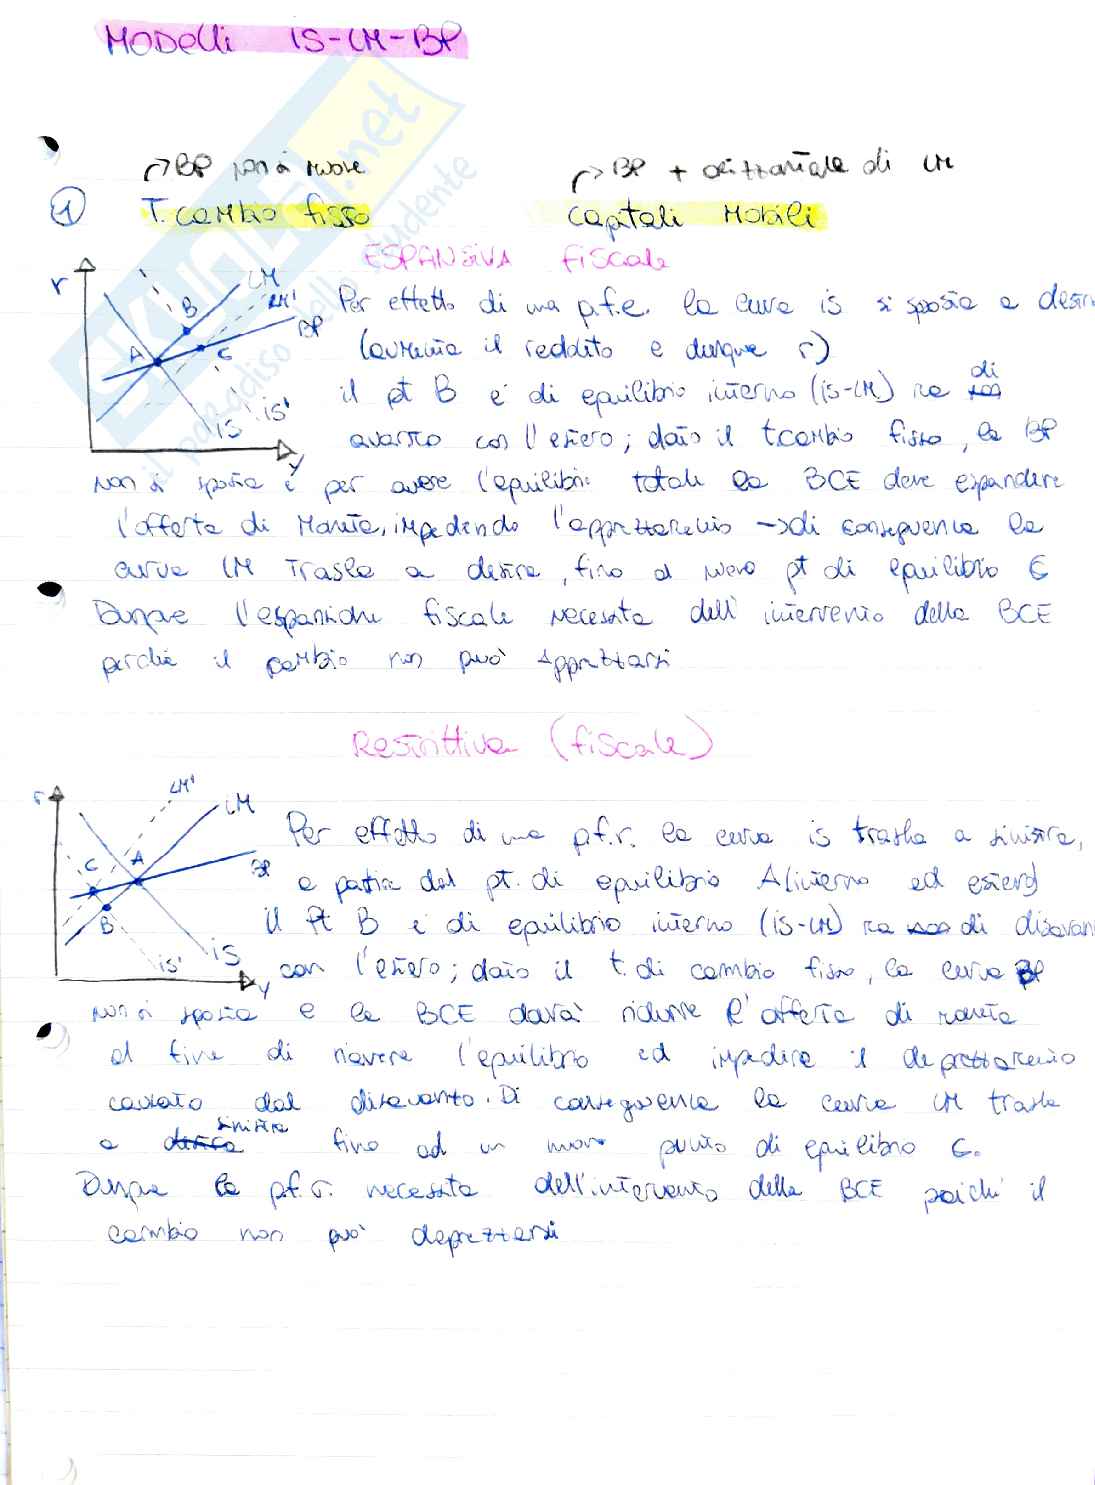 MODELLI IS-LM-BP
SKUOLA.net
il paradiso dello studente
→ BP non si muove
→ BP + orizzontale di LM
1 T. cambio fisso
capitali Mobili
ESPANSIVA fiscale
r LM LM' BP A B C IS IS' y
Per effetto di una p.f.e. la curva is si sposta a destr
(aumenta il reddito e dunque r)
il pt B è di equilibrio interno (is-LM) ma di
avanzo con l'estero; dato il t.cambio fisso, la BP
non si sposta e per avere l'equilibrio totale la BCE deve espandere
l'offerta di Moneta, impedendo l'apprezzamento → di conseguenza la
curva LM Trasla a destra, fino al nuovo pt di equilibrio C
Dunque l'espansione fiscale necessita dell'intervento della BCE
perché il cambio non può apprezzarsi
Restrittiva (fiscale)
r LM' LM BP C A B IS' IS y
Per effetto di una p.f.r. la curva is trasla a sinistra,
a partire dal pt. di equilibrio A (interno ed estero)
il Pt B è di equilibrio interno (is-LM) ma di disavan
con l'estero; dato il t. di cambio fisso, la curva BP
non si sposta e la BCE dovrà ridurre l'offerta di moneta
al fine di riavere l'equilibrio ed impedire il deprezzamento
causato dal disavanzo. Di conseguenza la curva LM trasla
a sinistra fino ad un nuovo punto di equilibrio C.
Dunque la p.f.r. necessita dell'intervento della BCE poiché il
cambio non può deprezzarsi